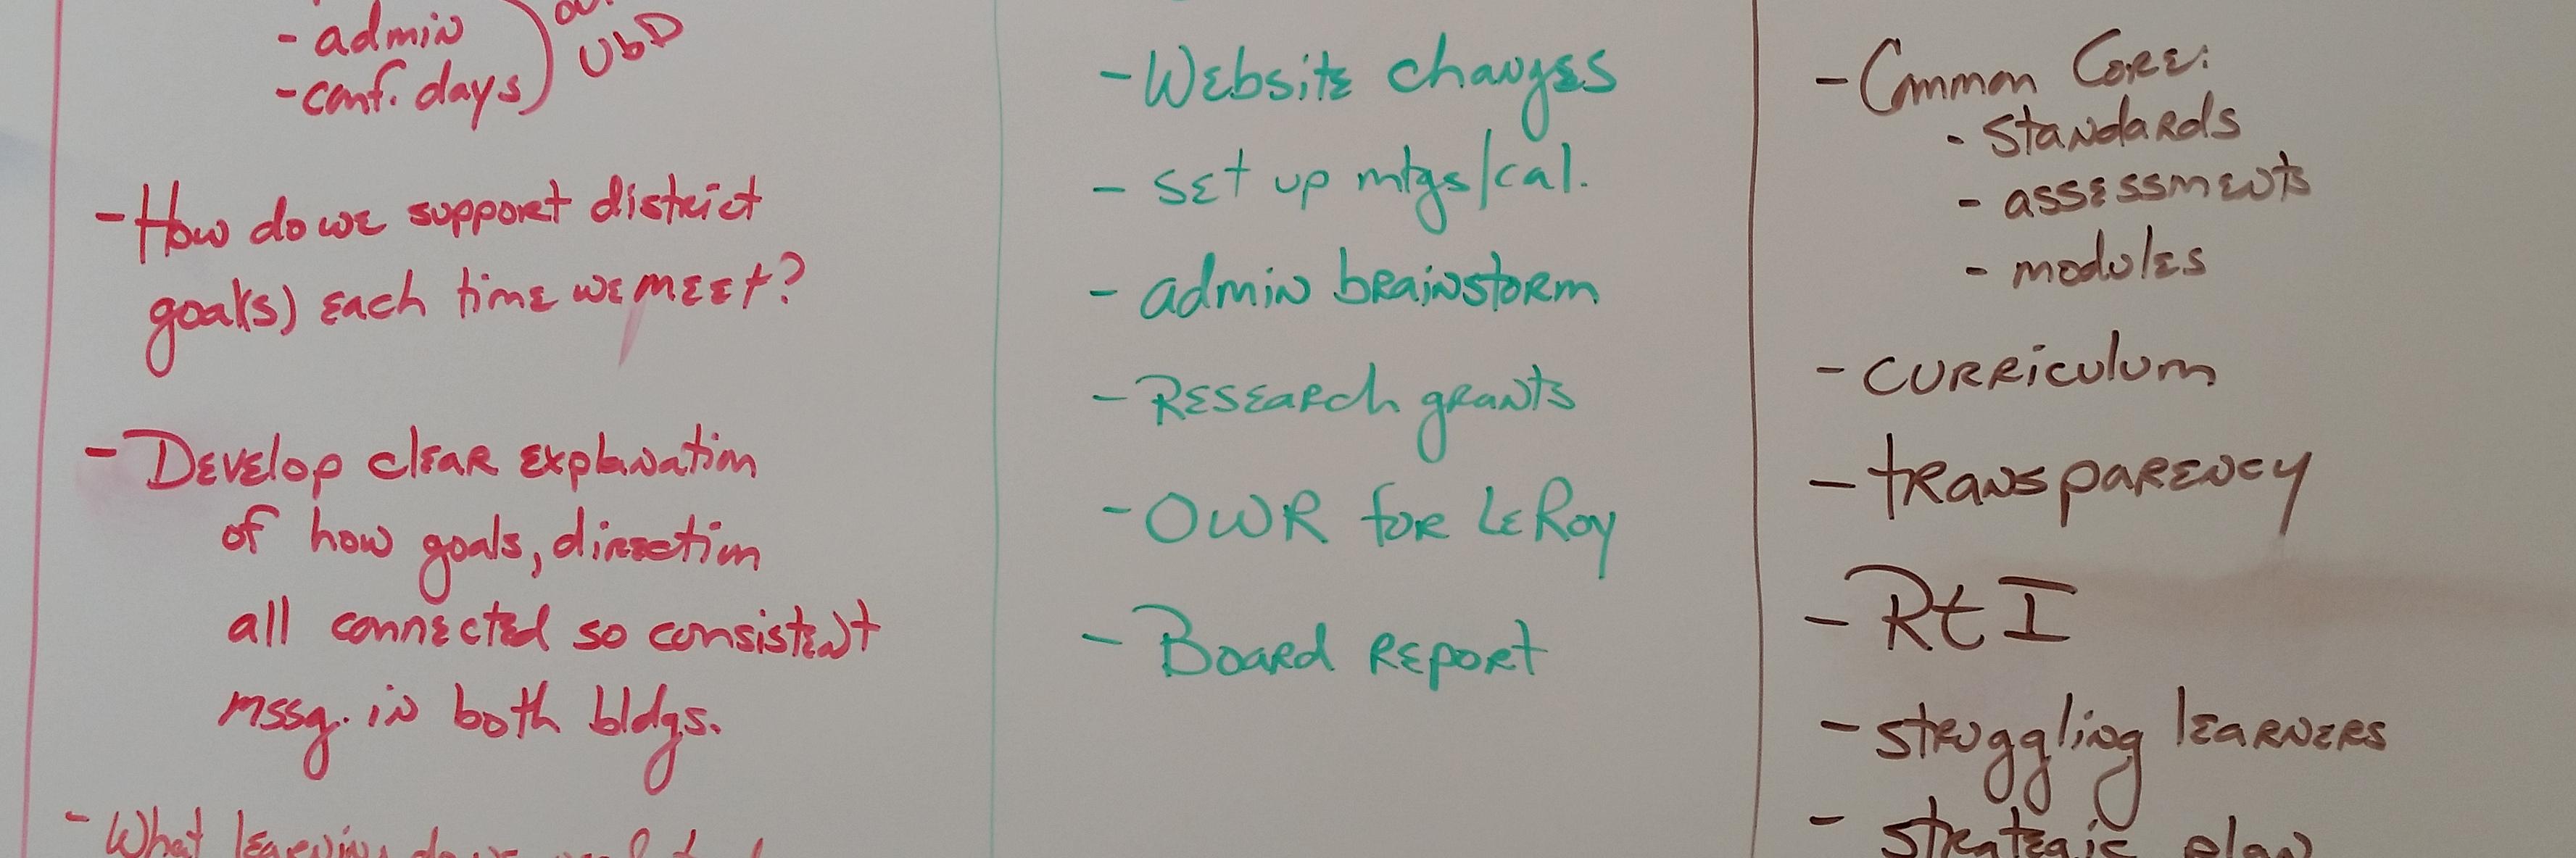 - admin
- conf. days
UbD
- How do we support district
goal(s) each time we meet?
- Develop clear explanation
of how goals, direction
all connected so consistent
mssg. in both bldgs.
- What learning do we
- Website changes
- set up mtgs/cal.
- admin brainstorm
- Research grants
- OWR for LeRoy
- Board report
- Common Core:
- standards
- assessments
- modules
- curriculum
- transparency
- RtI
- struggling learners
- strategic plan